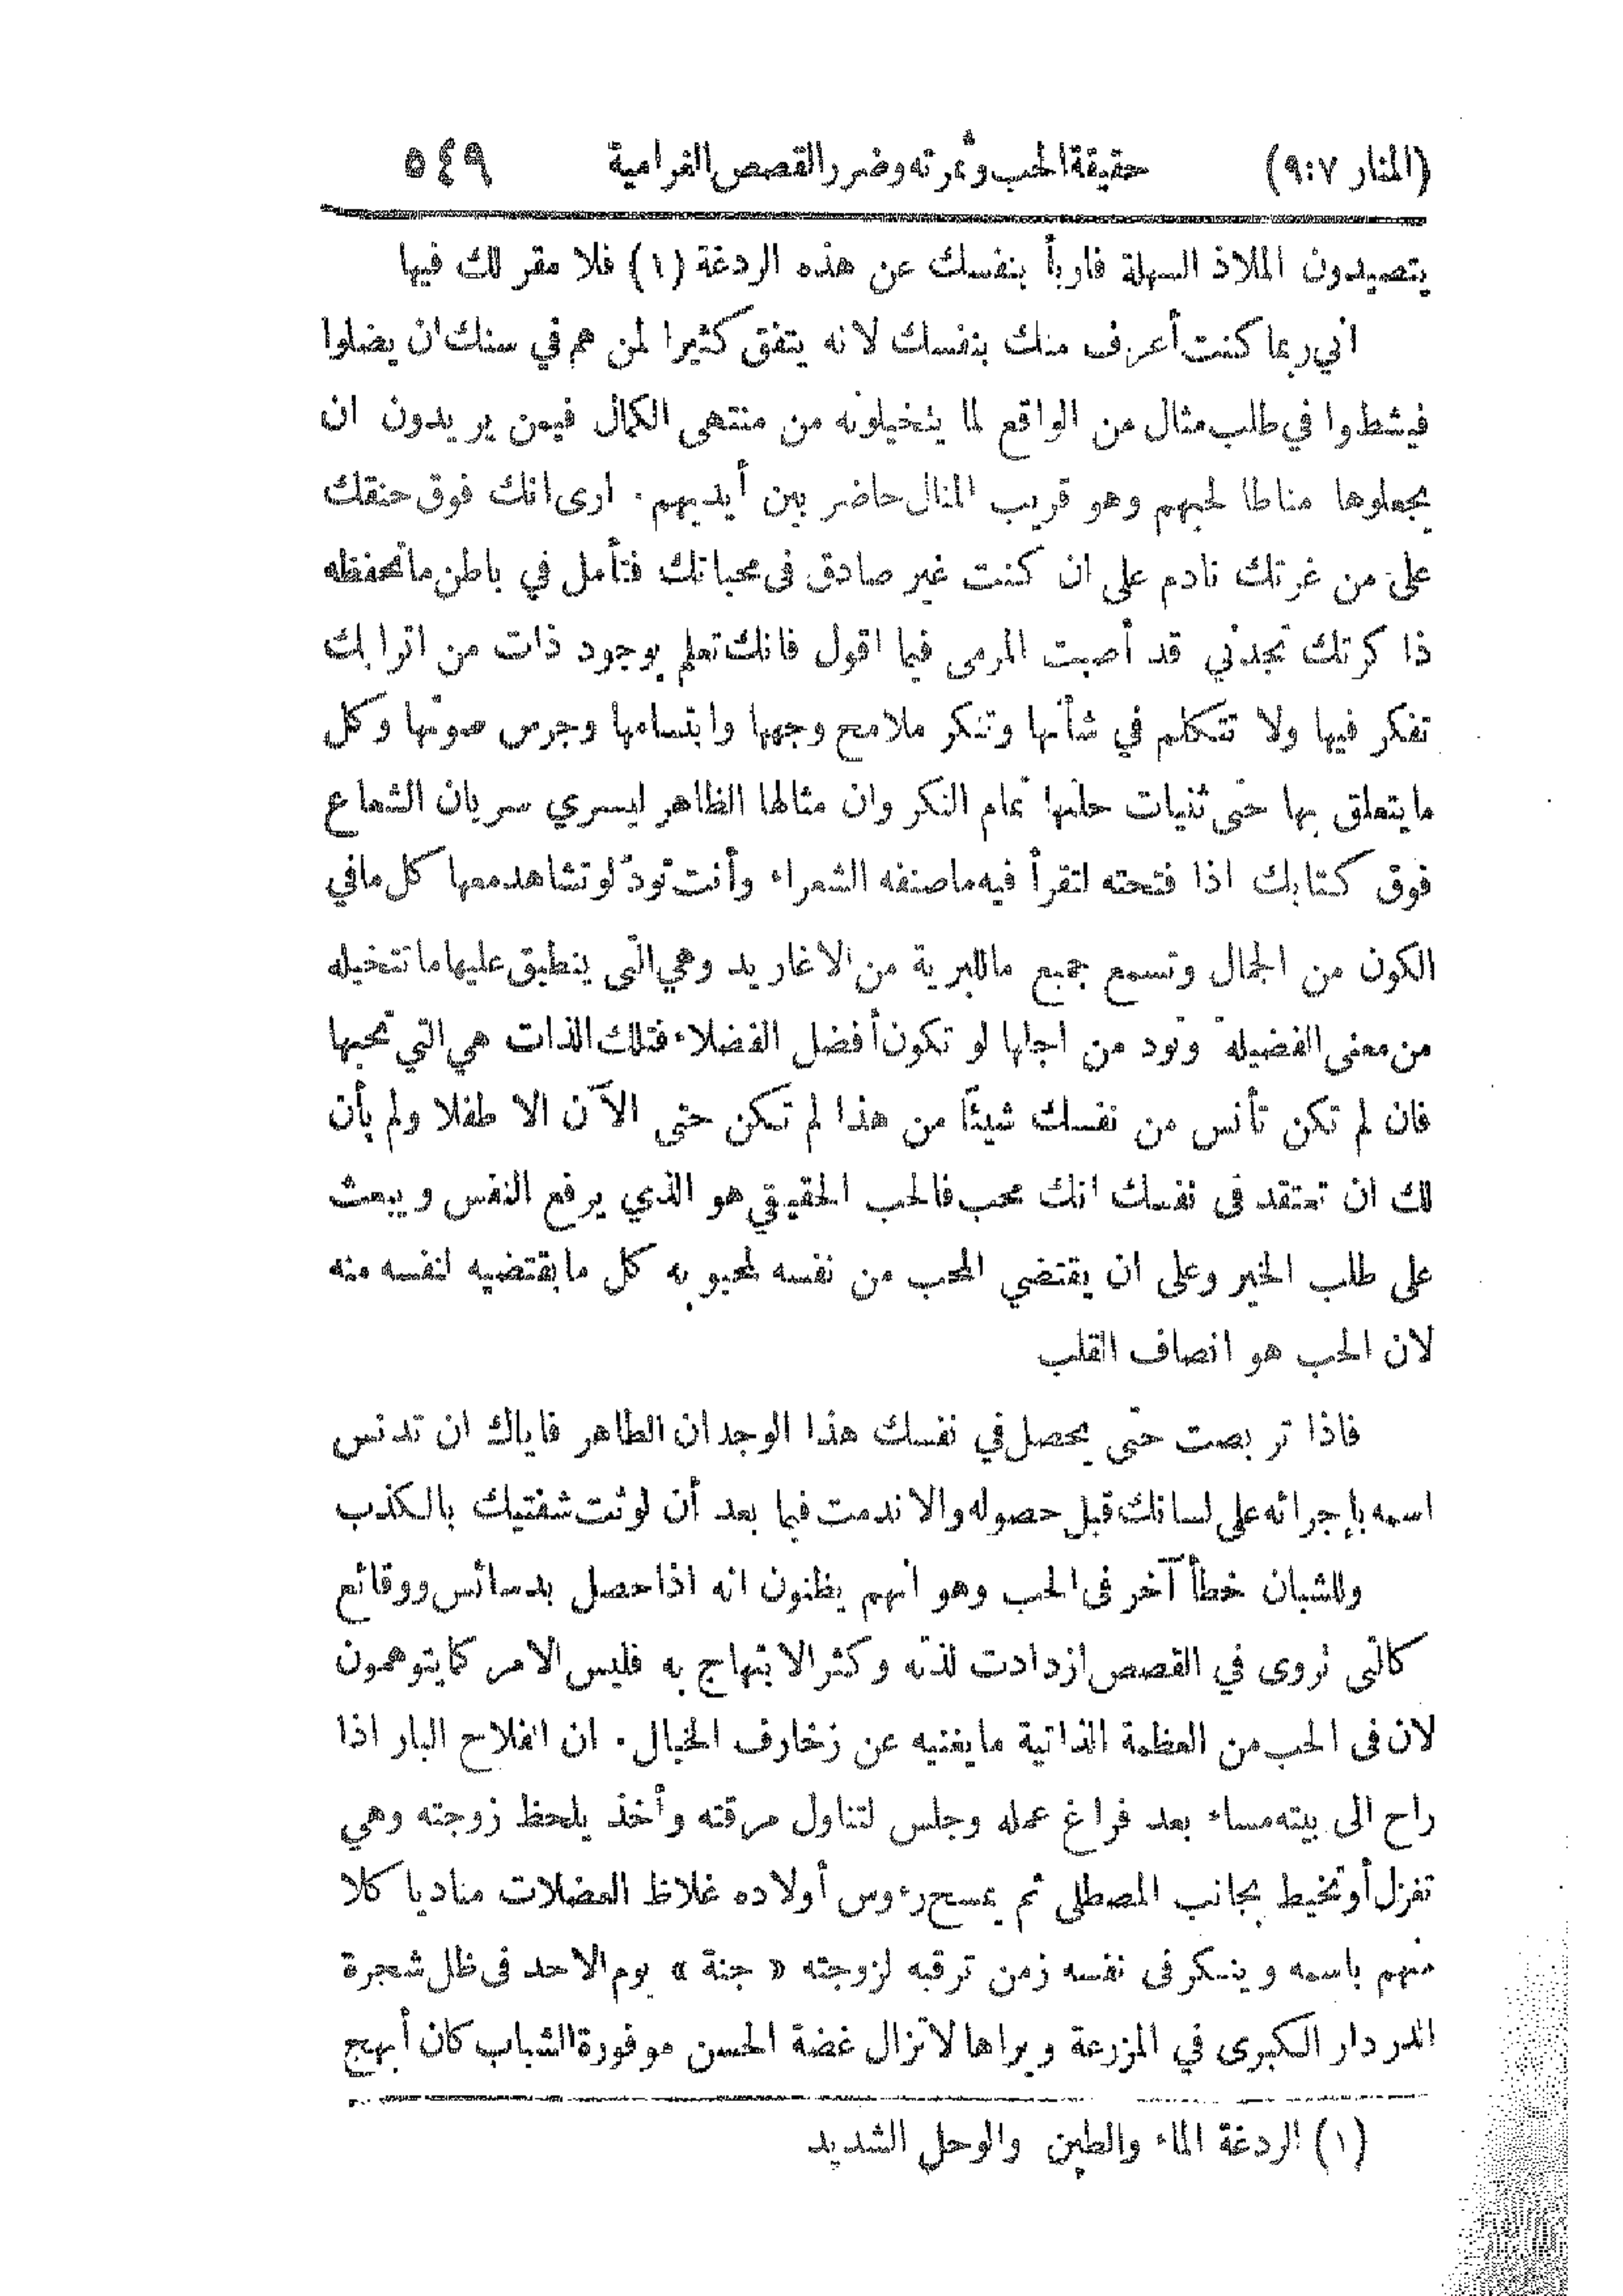 (المنار ٩:٧) حقيقة الحب وثمرته وضرر القصص الغرامية ٥٤٩
يتصيدون الملاذ السهلة فاربأ بنفسك عن هذه الردغة (١) فلا مقر لك فيها
اني ربما كنت أعرف منك بنفسك لانه يتفق كثيرا لمن هم في سنك ان يضلوا
فيشطوا في طلب مثال من الواقع لما يتخيلونه من منتهى الكمال فيمن يريدون ان
يجعلوها مناطا لحبهم وهو قريب المنال حاضر بين أيديهم. ارى انك فوق حنقك
على من غرتك نادم على ان كنت غير صادق فى محباتك فتأمل في باطن ما تحفظه
ذا كرتك تجدني قد أصبت المرمى فيما اقول فانك تعلم بوجود ذات من اترابك
تفكر فيها ولا تتكلم في شأنها وتنكر ملامح وجهها وابتسامها وجرس صوتها وكل
ما يتعلق بها حتى ثنيات حلتها تمام النكر وان مثالها الظاهر ليسري سريان الشعاع
فوق كتابك اذا فتحته لتقرأ فيه ما صنفه الشعراء وأنت تودّ لو تشاهد معها كل ما في
الكون من الجمال وتسمع جميع ما للبرية من الاغاريد وهي التى ينطبق عليها ما تتخيله
من معنى الفضيلة وتود من اجلها لو تكون أفضل الفضلاء فتلك الذات هي التي تحبها
فان لم تكن تأنس من نفسك شيئاً من هذا لم تكن حتى الآن الا طفلا ولم يأن
لك ان تعتقد فى نفسك انك محب فالحب الحقيقي هو الذي يرفع النفس ويبعث
على طلب الخير وعلى ان يقتضي المحب من نفسه لمحبوبه كل ما يقتضيه لنفسه منه
لان الحب هو انصاف القلب
فاذا تربصت حتى يحصل في نفسك هذا الوجدان الطاهر فاياك ان تدنس
اسمه بإجرائه على لسانك قبل حصوله والا ندمت فيما بعد أن لوثت شفتيك بالكذب
وللشبان خطأ آخر فى الحب وهو انهم يظنون انه اذا حصل بدسائس ووقائع
كالتى تروى في القصص ازدادت لذته وكثر الابتهاج به فليس الامر كما يتوهمون
لان فى الحب من العظمة الذاتية ما يغنيه عن زخارف الخيال. ان الفلاح البار اذا
راح الى بيته مساء بعد فراغ عمله وجلس لتناول مرقته وأخذ يلحظ زوجته وهي
تغزل أو تخيط بجانب المصطلى ثم يمسح رءوس أولاده غلاظ العضلات مناديا كلا
منهم باسمه ويفكر فى نفسه زمن ترقبه لزوجته « جنة » يوم الاحد فى ظل شجرة
الدردار الكبرى في المزرعة ويراها لا تزال غضة الحسن موفورة الشباب كان أبهج
(١) الردغة الماء والطين والوحل الشديد